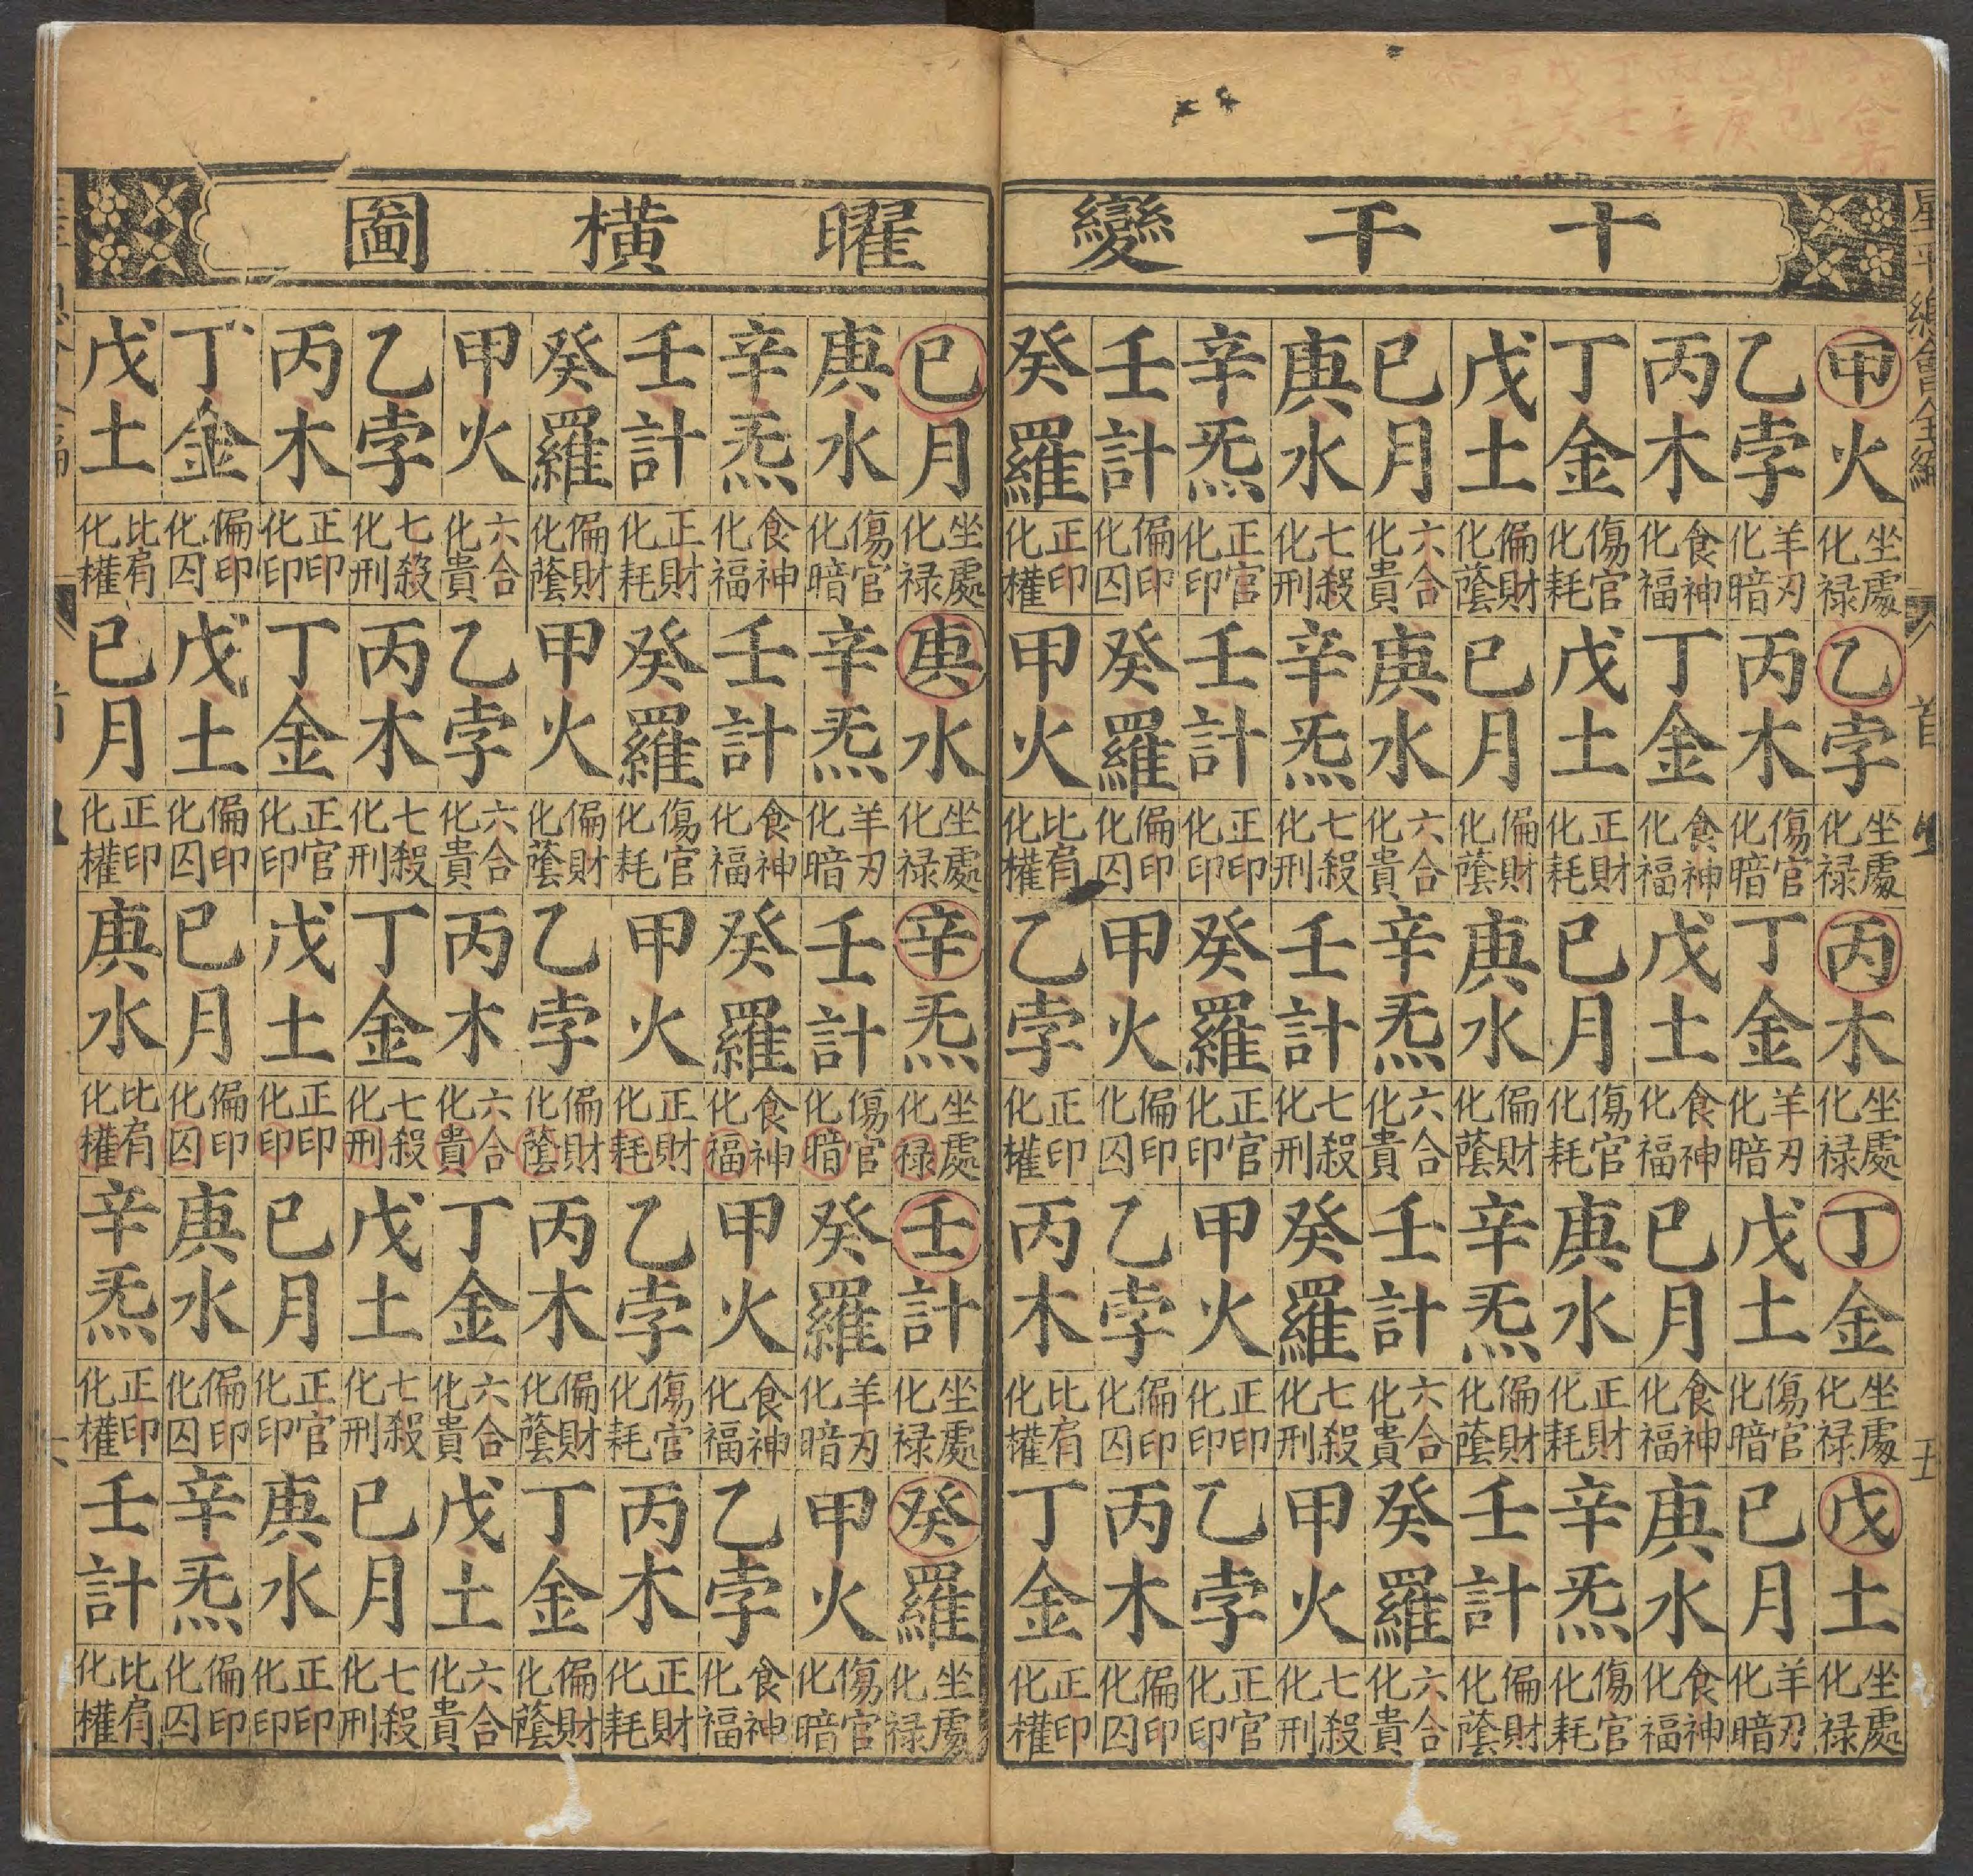 十干變曜橫圖
星平總會全編
首
五
甲火坐處化禄
乙孛羊刃化暗
丙木食神化福
丁金傷官化耗
戊土偏財化蔭
已月六合化貴
庚水七殺化刑
辛炁正官化印
壬計偏印化囚
癸羅正印化權
乙孛坐處化禄
丙木傷官化暗
丁金食神化福
戊土正財化耗
已月偏財化蔭
庚水六合化貴
辛炁七殺化刑
壬計正印化印
癸羅偏印化囚
甲火比肩化權
丙木坐處化禄
丁金羊刃化暗
戊土食神化福
已月傷官化耗
庚水偏財化蔭
辛炁六合化貴
壬計七殺化刑
癸羅正官化印
甲火偏印化囚
乙孛正印化權
丁金坐處化禄
戊土傷官化暗
已月食神化福
庚水正財化耗
辛炁偏財化蔭
壬計六合化貴
癸羅七殺化刑
甲火正印化印
乙孛偏印化囚
丙木比肩化權
戊土坐處化禄
已月羊刃化暗
庚水食神化福
辛炁傷官化耗
壬計偏財化蔭
癸羅六合化貴
甲火七殺化刑
乙孛正官化印
丙木偏印化囚
丁金正印化權
已月坐處化禄
庚水傷官化暗
辛炁食神化福
壬計正財化耗
癸羅偏財化蔭
甲火六合化貴
乙孛七殺化刑
丙木正印化印
丁金偏印化囚
戊土比肩化權
庚水坐處化禄
辛炁羊刃化暗
壬計食神化福
癸羅傷官化耗
甲火偏財化蔭
乙孛六合化貴
丙木七殺化刑
丁金正官化印
戊土偏印化囚
已月正印化權
辛炁坐處化禄
壬計傷官化暗
癸羅食神化福
甲火正財化耗
乙孛偏財化蔭
丙木六合化貴
丁金七殺化刑
戊土正印化印
已月偏印化囚
庚水比肩化權
壬計坐處化禄
癸羅羊刃化暗
甲火食神化福
乙孛傷官化耗
丙木偏財化蔭
丁金六合化貴
戊土七殺化刑
已月正官化印
庚水偏印化囚
辛炁正印化權
癸羅坐處化禄
甲火傷官化暗
乙孛食神化福
丙木正財化耗
丁金偏財化蔭
戊土六合化貴
已月七殺化刑
庚水正印化印
辛炁偏印化囚
壬計比肩化權